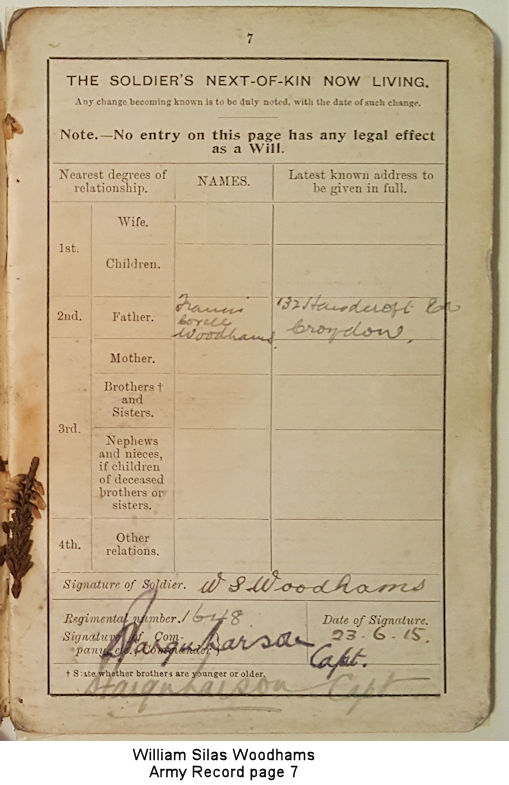 7
THE SOLDIER'S NEXT-OF-KIN NOW LIVING.
Any change becoming known is to be duly noted, with the date of such change.
Note.—No entry on this page has any legal effect
as a Will.
Nearest degrees of relationship.
NAMES.
Latest known address to be given in full.
1st.
Wife.
Children.
2nd.
Father.
Francis
Woodhams
132 Handcroft Rd
Croydon.
Mother.
3rd.
Brothers † and Sisters.
Nephews and nieces, if children of deceased brothers or sisters.
4th.
Other relations.
Signature of Soldier. W S Woodhams
Regimental number. 1648.
Date of Signature.
23.6.15.
Signature of Com-
pany, etc., Commander
Farquharson
Capt.
† State whether brothers are younger or older.
Farquharson Capt
William Silas Woodhams
Army Record page 7